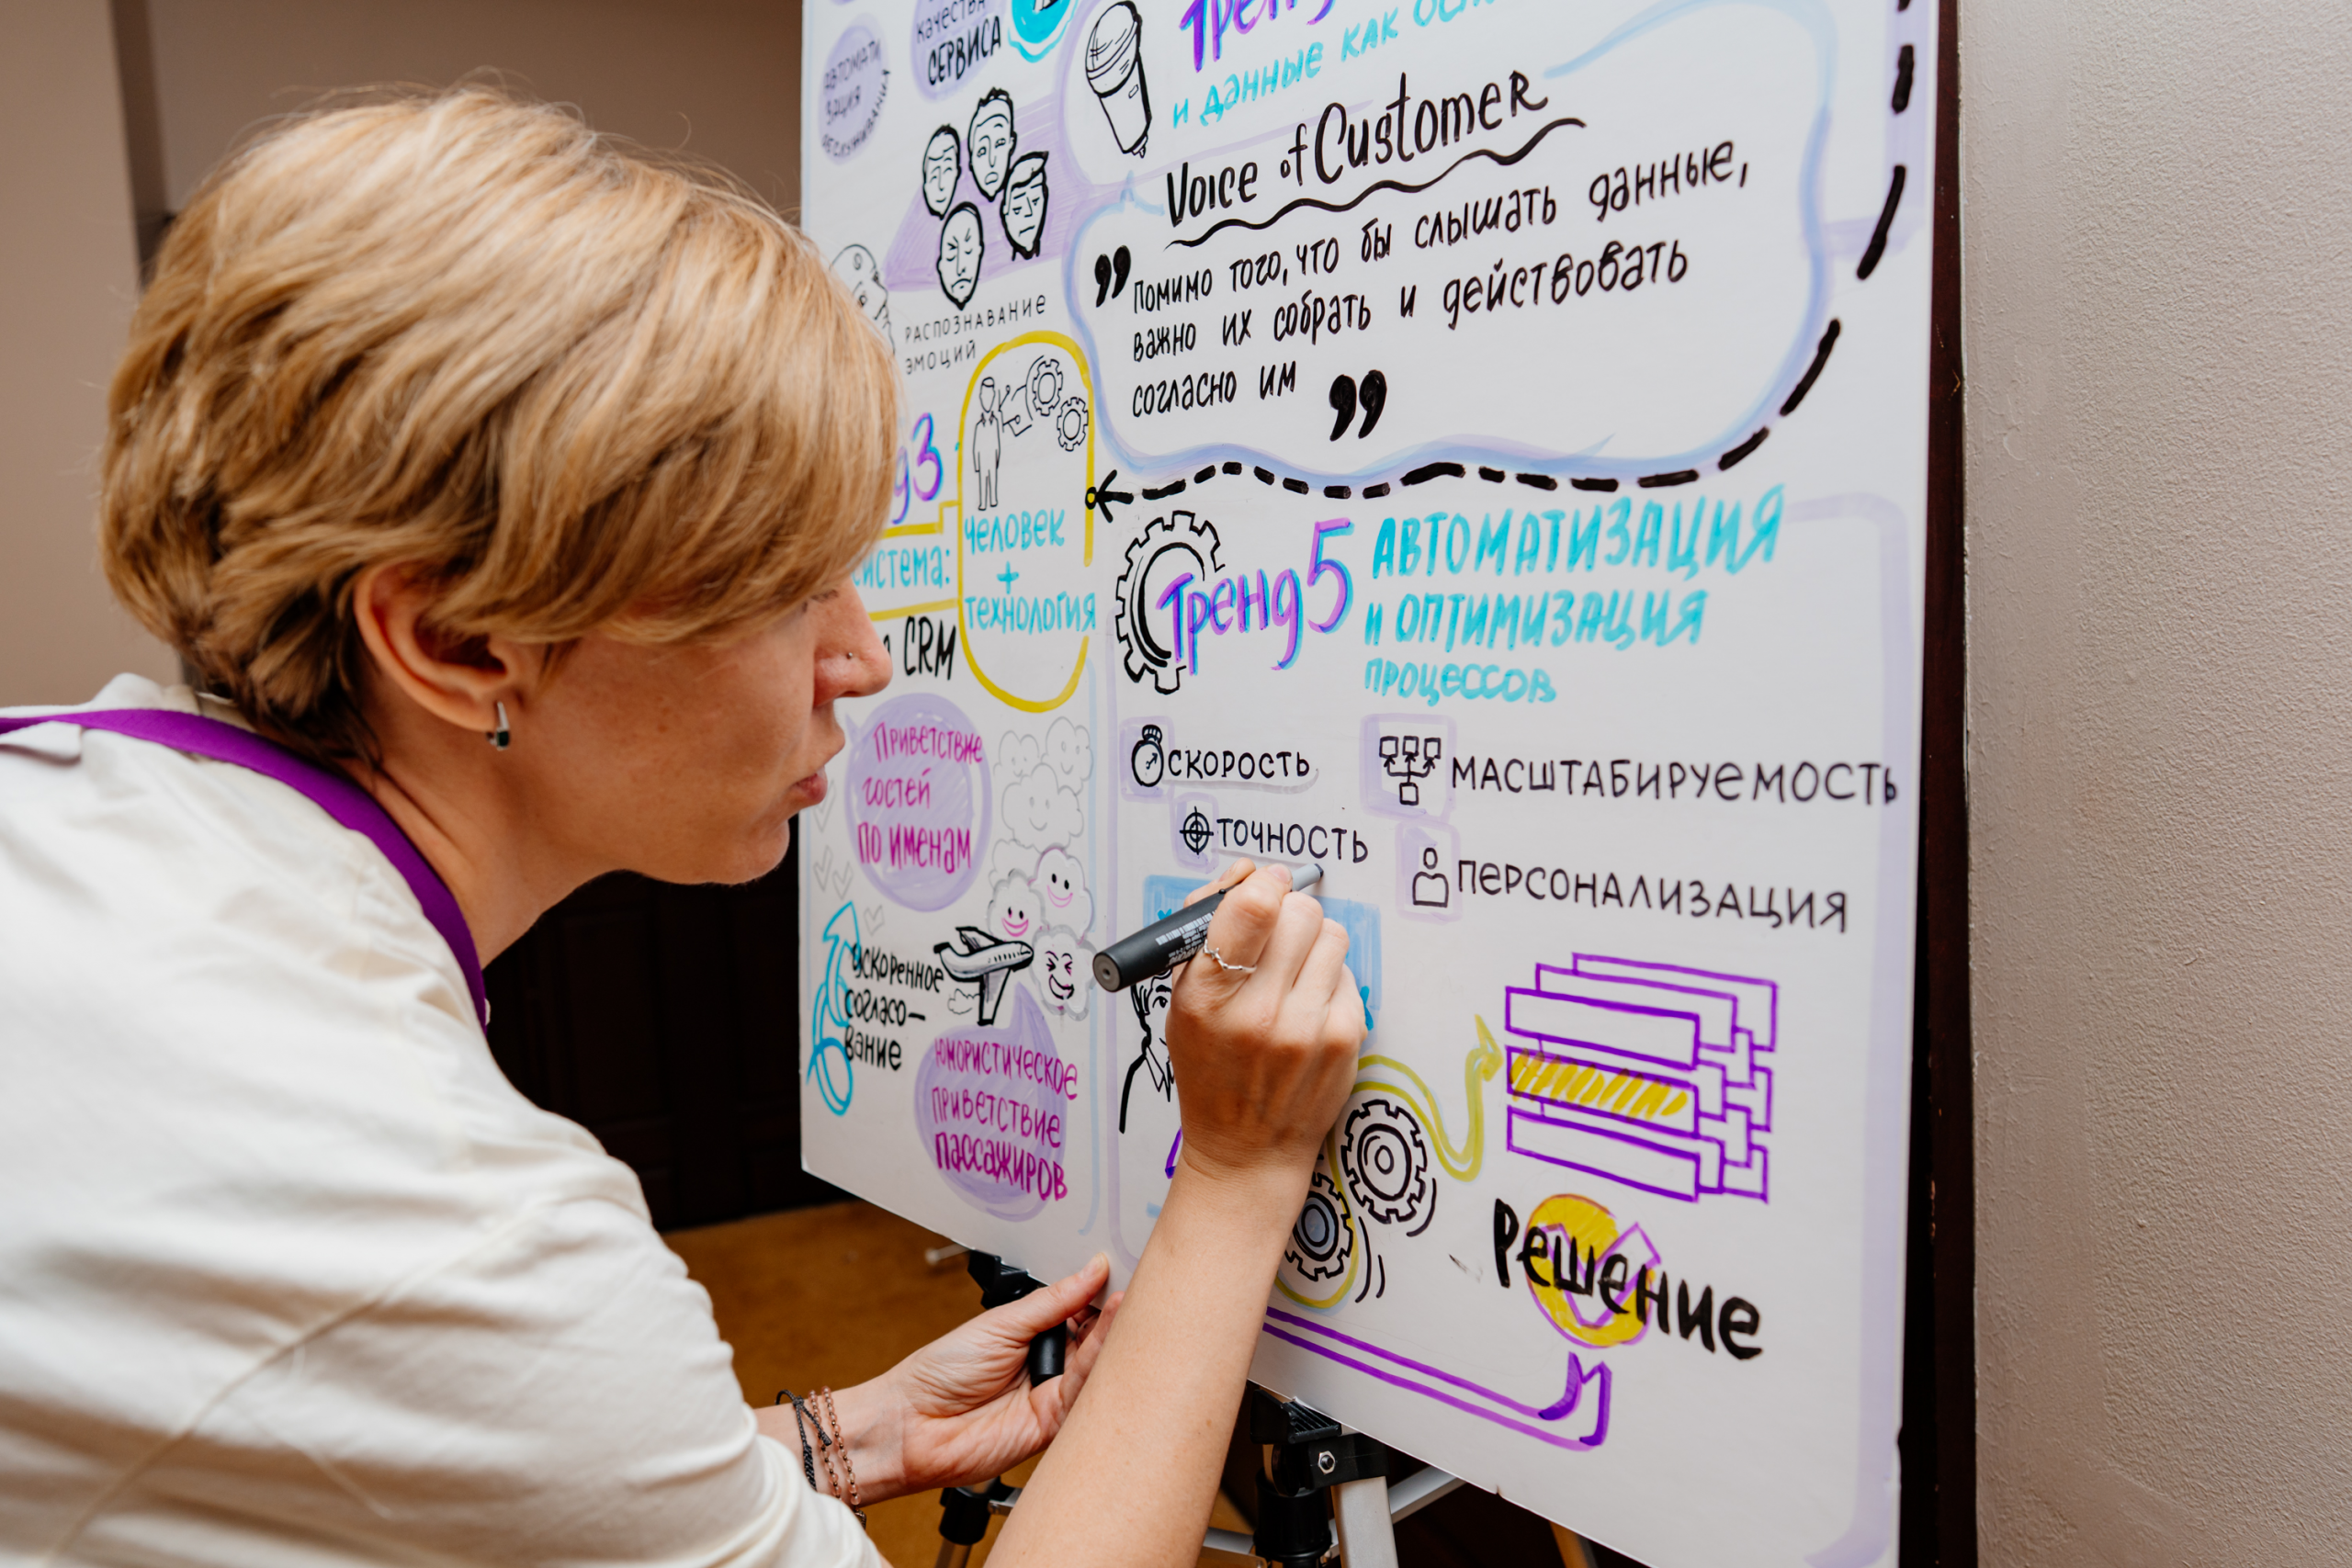 качества
СЕРВИСА
АВТОМАТИ
ЗАЦИЯ
РАСПОЗНАВАНИЕ
ЭМОЦИЙ
и данные как
Voice of Customer
❞ Помимо того, что бы слышать данные,
важно их собрать и действовать
согласно им ❞
человек
+
технология
CRM
Приветствие
гостей
по именам
ускоренное
согласо-
вание
юмористическое
приветствие
пассажиров
Тренд 5
АВТОМАТИЗАЦИЯ
и ОПТИМИЗАЦИЯ
процессов
СКОРОСТЬ
МАСШТАБИРУЕМОСТЬ
ТОЧНОСТЬ
ПЕРСОНАЛИЗАЦИЯ
Решение